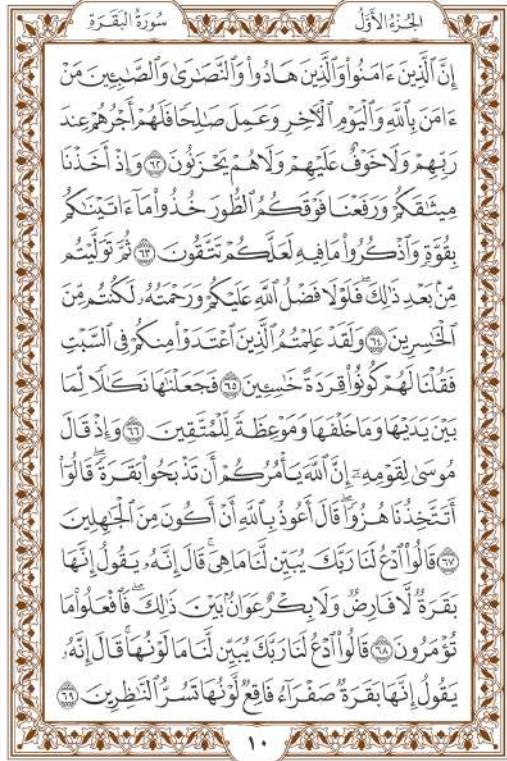 الجُزْءُ الأَوَّلُ سُورَةُ البَقَرَةِ
إِنَّ ٱلَّذِينَ ءَامَنُواْ وَٱلَّذِينَ هَادُواْ وَٱلنَّصَٰرَىٰ وَٱلصَّٰبِـِٔينَ مَنْ
ءَامَنَ بِٱللَّهِ وَٱلْيَوْمِ ٱلْءَاخِرِ وَعَمِلَ صَٰلِحًا فَلَهُمْ أَجْرُهُمْ عِندَ
رَبِّهِمْ وَلَا خَوْفٌ عَلَيْهِمْ وَلَا هُمْ يَحْزَنُونَ ٦٢ وَإِذْ أَخَذْنَا
مِيثَٰقَكُمْ وَرَفَعْنَا فَوْقَكُمُ ٱلطُّورَ خُذُواْ مَآ ءَاتَيْنَٰكُم
بِقُوَّةٍ وَٱذْكُرُواْ مَا فِيهِ لَعَلَّكُمْ تَتَّقُونَ ٦٣ ثُمَّ تَوَلَّيْتُم
مِّنۢ بَعْدِ ذَٰلِكَ ۖ فَلَوْلَا فَضْلُ ٱللَّهِ عَلَيْكُمْ وَرَحْمَتُهُۥ لَكُنتُم مِّنَ
ٱلْخَٰسِرِينَ ٦٤ وَلَقَدْ عَلِمْتُمُ ٱلَّذِينَ ٱعْتَدَوْاْ مِنكُمْ فِى ٱلسَّبْتِ
فَقُلْنَا لَهُمْ كُونُواْ قِرَدَةً خَٰسِـِٔينَ ٦٥ فَجَعَلْنَٰهَا نَكَٰلًا لِّمَا
بَيْنَ يَدَيْهَا وَمَا خَلْفَهَا وَمَوْعِظَةً لِّلْمُتَّقِينَ ٦٦ وَإِذْ قَالَ
مُوسَىٰ لِقَوْمِهِۦٓ إِنَّ ٱللَّهَ يَأْمُرُكُمْ أَن تَذْبَحُواْ بَقَرَةً ۖ قَالُوٓاْ
أَتَتَّخِذُنَا هُزُوًا ۖ قَالَ أَعُوذُ بِٱللَّهِ أَنْ أَكُونَ مِنَ ٱلْجَٰهِلِينَ
٦٧ قَالُواْ ٱدْعُ لَنَا رَبَّكَ يُبَيِّن لَّنَا مَا هِىَ ۚ قَالَ إِنَّهُۥ يَقُولُ إِنَّهَا
بَقَرَةٌ لَّا فَارِضٌ وَلَا بِكْرٌ عَوَانٌۢ بَيْنَ ذَٰلِكَ ۖ فَٱفْعَلُواْ مَا
تُؤْمَرُونَ ٦٨ قَالُواْ ٱدْعُ لَنَا رَبَّكَ يُبَيِّن لَّنَا مَا لَوْنُهَا ۚ قَالَ إِنَّهُۥ
يَقُولُ إِنَّهَا بَقَرَةٌ صَفْرَآءُ فَاقِعٌ لَّوْنُهَا تَسُرُّ ٱلنَّٰظِرِينَ ٦٩
١٠